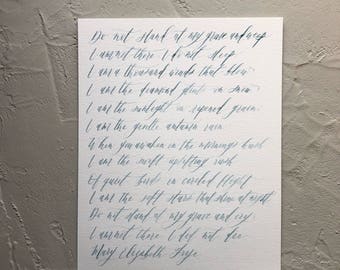 Do not stand at my grave and weep
I am not there I do not sleep
I am a thousand winds that blow
I am the diamond glints on snow
I am the sunlight on ripened grain
I am the gentle autumn rain
When you awaken in the mornings hush
I am the swift uplifting rush
Of quiet birds in circled flight
I am the soft stars that shine at night
Do not stand at my grave and cry
I am not there I did not die
Mary Elizabeth Frye